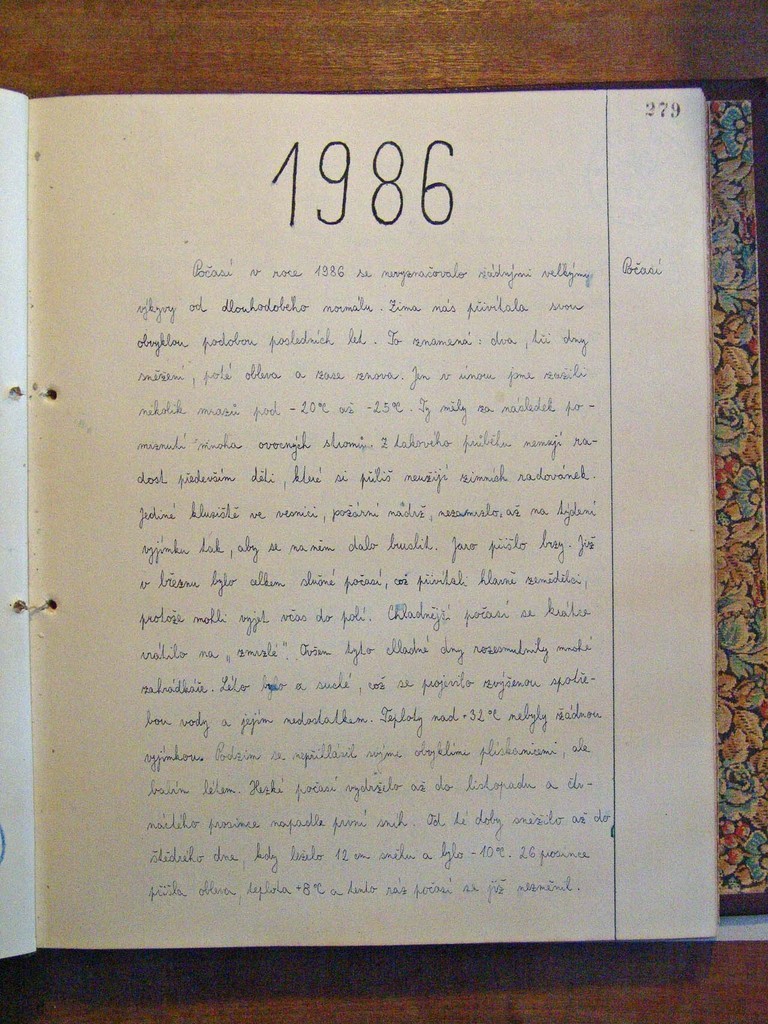 279
1986
Počasí v roce 1986 se nevyznačovalo žádnými velkými Počasí
výkyvy od dlouhodobého normálu. Zima nás přivítala svou
obvyklou podobou posledních let. To znamená: dva, tři dny
sněžení, poté obleva a zase znova. Jen v únoru jsme zažili
několik mrazů pod -20°C až -25°C. Ty měly za následek po-
mrznutí mnoha ovocných stromů. Z takového průběhu nemají ra-
dost především děti, které si příliš neužijí zimních radovánek.
Jediné kluziště ve vesnici, požární nádrž, nezamrzlo, až na týdení
vyjímku tak, aby se na něm dalo bruslit. Jaro přišlo brzy. Již
v březnu bylo celkem slušné počasí, což přivítali hlavně zemědělci,
protože mohli vyjet včas do polí. Chladnější počasí se krátce
vrátilo na „zmrzlé". Ovšem tyto chladné dny rozesmutnily mnohé
zahrádkáře. Léto bylo a suché, což se projevilo zvýšenou spotře-
bou vody a jejím nedostatkem. Teploty nad +32°C nebyly žádnou
vyjímkou. Podzim se nepřihlásil svými obvyklými plískanicemi, ale
babím létem. Hezké počasí vydrželo až do listopadu a čtr-
náctého prosince napadl první sníh. Od té doby sněžilo až do
štědrého dne, kdy leželo 12 cm sněhu a bylo -10°C. 26 prosince
přišla obleva, teplota +8°C a tento ráz počasí se již nezměnil.